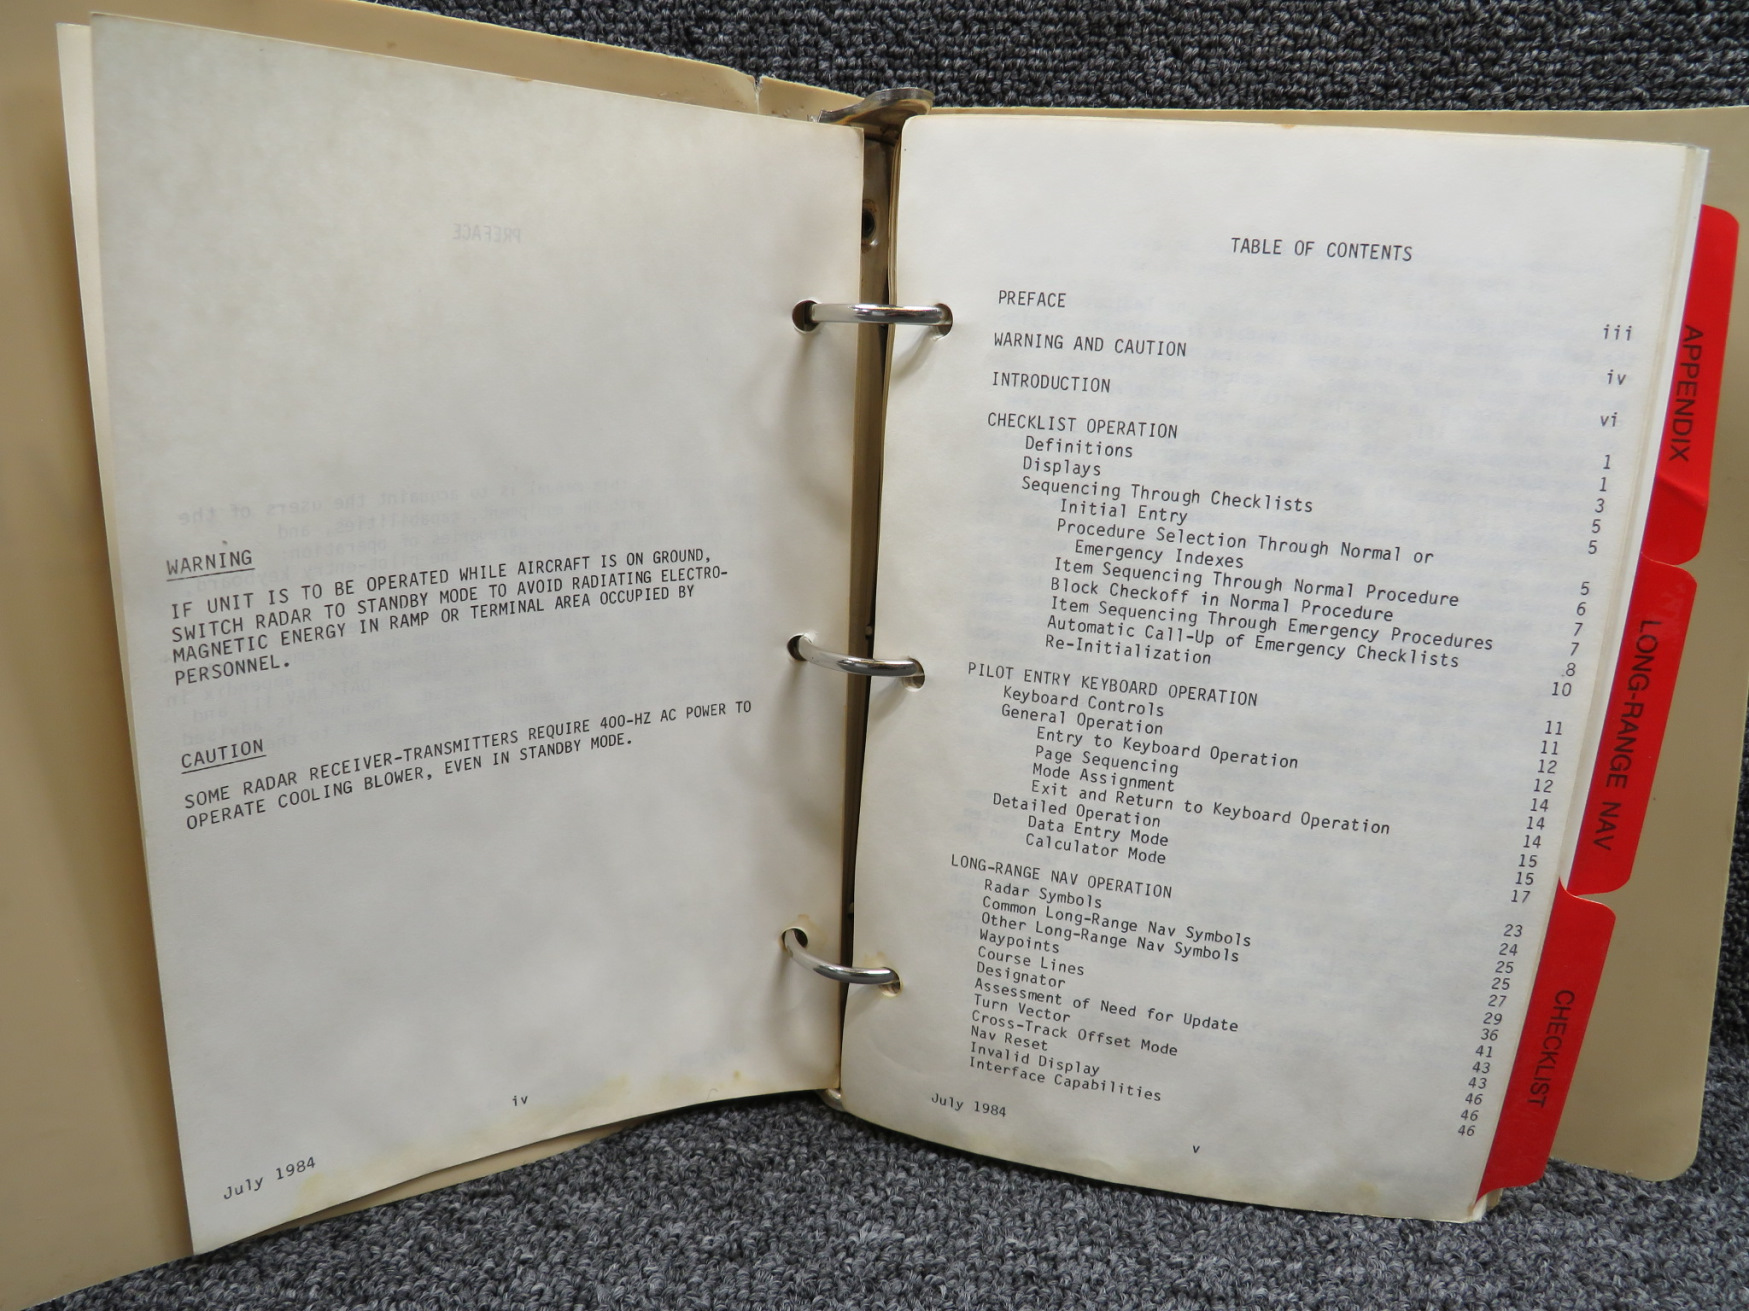 WARNING
IF UNIT IS TO BE OPERATED WHILE AIRCRAFT IS ON GROUND,
SWITCH RADAR TO STANDBY MODE TO AVOID RADIATING ELECTRO-
MAGNETIC ENERGY IN RAMP OR TERMINAL AREA OCCUPIED BY
PERSONNEL.
CAUTION
SOME RADAR RECEIVER-TRANSMITTERS REQUIRE 400-HZ AC POWER TO
OPERATE COOLING BLOWER, EVEN IN STANDBY MODE.
iv
July 1984
TABLE OF CONTENTS
PREFACE iii
WARNING AND CAUTION iv
INTRODUCTION vi
CHECKLIST OPERATION 1
Definitions 1
Displays 3
Sequencing Through Checklists 5
Initial Entry 5
Procedure Selection Through Normal or
Emergency Indexes 5
Item Sequencing Through Normal Procedure 6
Block Checkoff in Normal Procedure 7
Item Sequencing Through Emergency Procedures 7
Automatic Call-Up of Emergency Checklists 8
Re-Initialization 10
PILOT ENTRY KEYBOARD OPERATION 11
Keyboard Controls 11
General Operation 12
Entry to Keyboard Operation 12
Page Sequencing 14
Mode Assignment 14
Exit and Return to Keyboard Operation 14
Detailed Operation 15
Data Entry Mode 15
Calculator Mode 17
LONG-RANGE NAV OPERATION 23
Radar Symbols 24
Common Long-Range Nav Symbols 25
Other Long-Range Nav Symbols 25
Waypoints 27
Course Lines 29
Designator 36
Assessment of Need for Update 41
Turn Vector 43
Cross-Track Offset Mode 43
Nav Reset 46
Invalid Display 46
Interface Capabilities 46
July 1984
v
APPENDIX
LONG-RANGE NAV
CHECKLIST